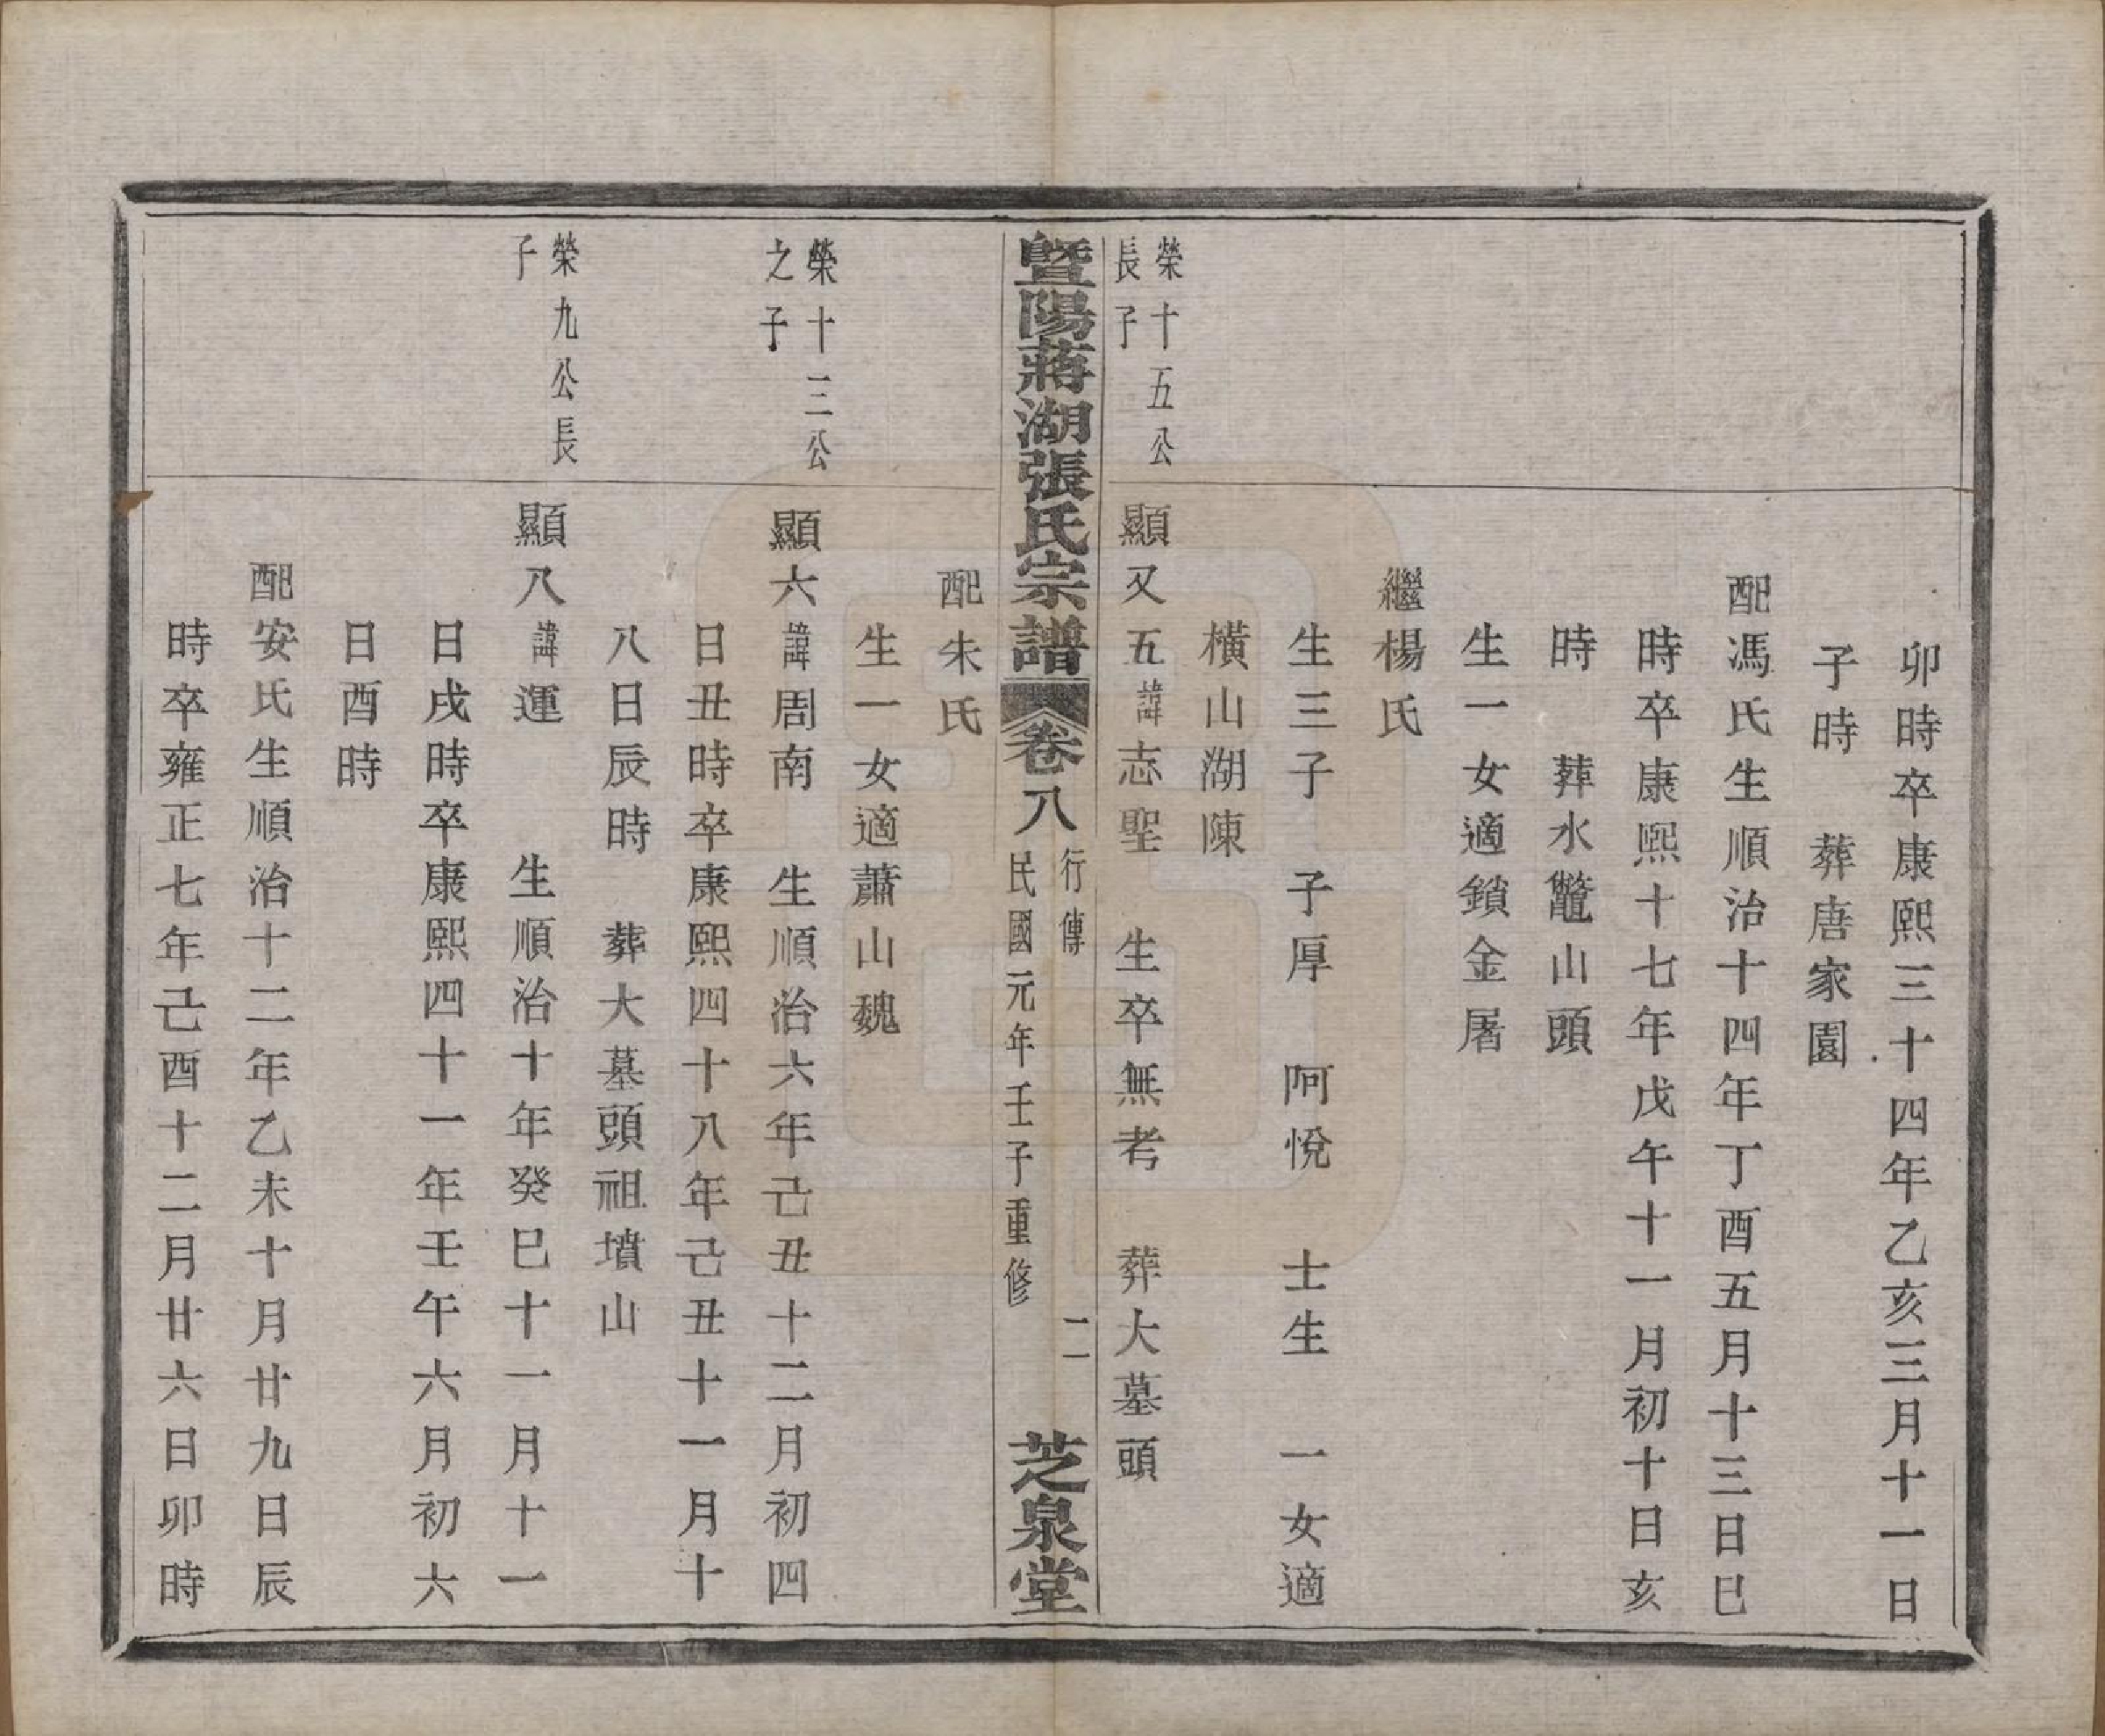 卯時卒康熙三十四年乙亥三月十一日
子時　葬唐家園
配馮氏生順治十四年丁酉五月十三日巳
時卒康熙十七年戊午十一月初十日亥
時　葬水鼈山頭
生一女適鎖金屠
繼楊氏
生三子　子厚　阿悅　士生　一女適
橫山湖陳
榮十五公
長子
顯又五諱志聖　生卒無考　葬大墓頭
暨陽蔣湖張氏宗譜　卷八
行傳
民國元年壬子重修
二
芝泉堂
配朱氏
生一女適蕭山魏
榮十三公
之子
顯六諱周南　生順治六年己丑十二月初四
日丑時卒康熙四十八年己丑十一月十
八日辰時　葬大墓頭祖墳山
榮九公長
子
顯八諱運　生順治十年癸巳十一月十一
日戌時卒康熙四十一年壬午六月初六
日酉時
配安氏生順治十二年乙未十月廿九日辰
時卒雍正七年己酉十二月廿六日卯時